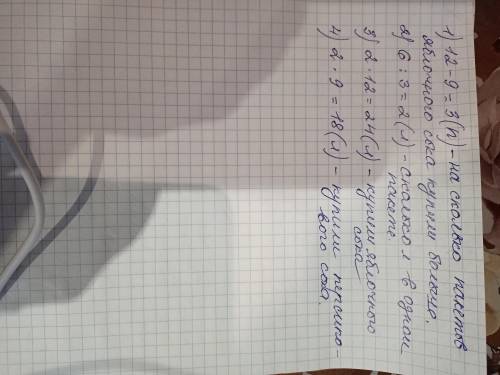 1) 12 - 9 = 3 (п) - на сколько пакетов
яблочного сока купили больше.
2) 6 : 3 = 2 (л) - сколько л в одном
пакете
3) 2 · 12 = 24 (л) - купили яблочного
сока
4) 2 · 9 = 18 (л) - купили персико-
вого сока.